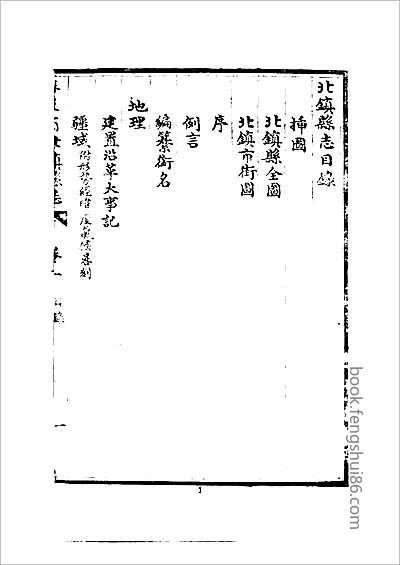 北鎮縣志目錄
插圖
北鎮縣全圖
北鎮市街圖
序
例言
編纂銜名
地理
建置沿革大事記
疆域
卷一
目錄
一
1
book.fengshui86.com